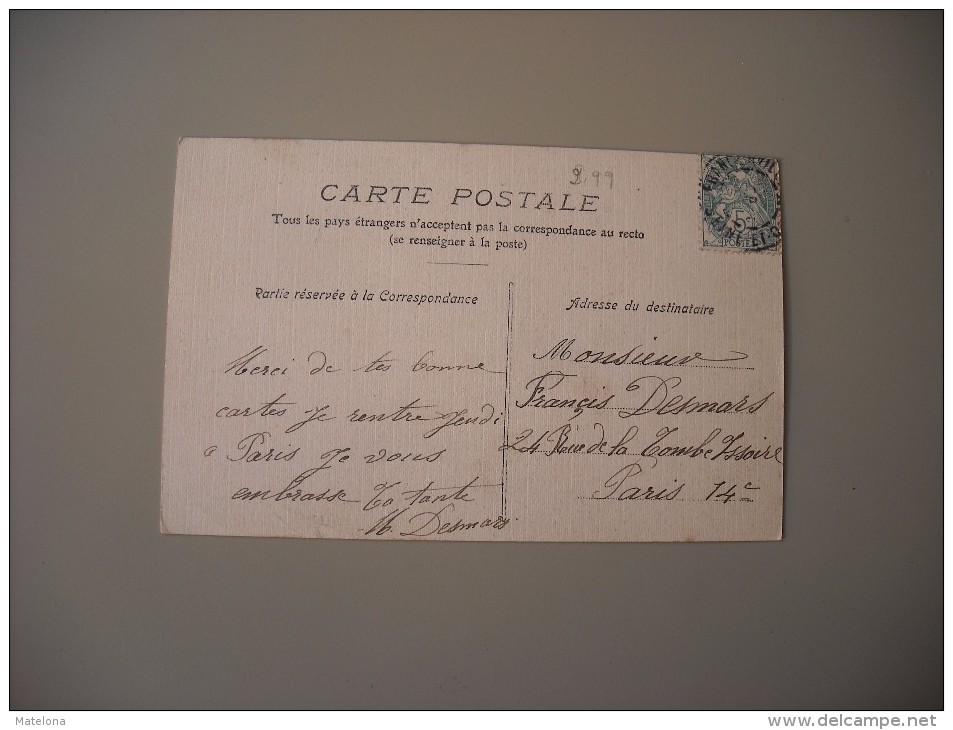 2,99
CARTE POSTALE
Tous les pays étrangers n'acceptent pas la correspondance au recto
(se renseigner à la poste)
Partie réservée à la Correspondance
Adresse du destinataire
Merci de tes bonne
cartes je rentre jeudi
a Paris je vous
embrasse Ta tante
M. Desmars
Monsieur
Francis Desmars
24 Rue de la Tombe Issoire
Paris 14e
5c
POSTE
Matelona
delcampe.net